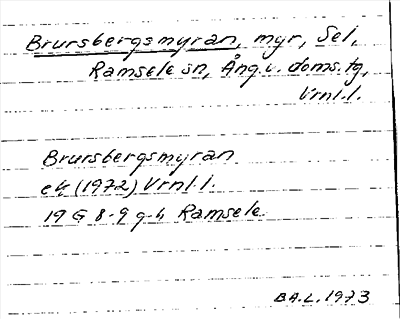 Brursbergsmyran, myr, Sel,
Ramsele sn, Ång.v. doms.tg,
Vrnl.l.
Brursbergsmyran
ek (1972) Vrnl.l.
19 G 8-9 g-h Ramsele.
B.A.L. 1973